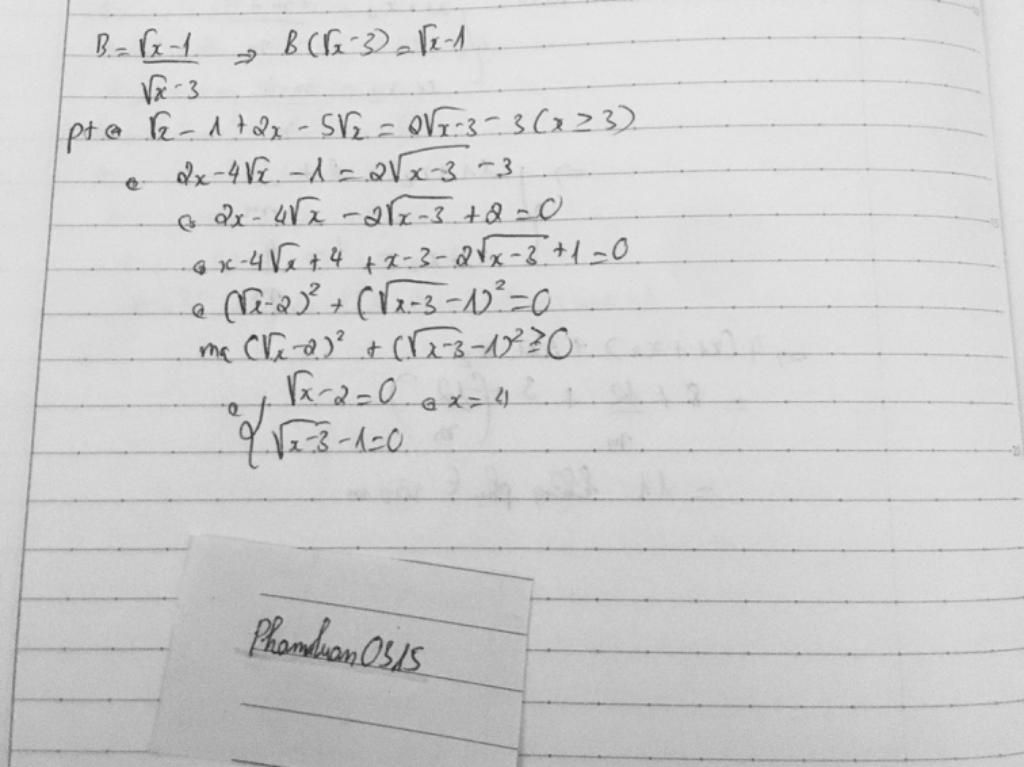 B = √x-1 / √x-3 ⇒ B(√x-3) = √x-1
pt ⇔ √x - 1 + 2x - 5√x = 2√x-3 - 3 (x ≥ 3)
⇔ 2x - 4√x - 1 = 2√x-3 - 3
⇔ 2x - 4√x - 2√x-3 + 2 = 0
⇔ x - 4√x + 4 + x - 3 - 2√x-3 + 1 = 0
⇔ (√x-2)² + (√x-3 - 1)² = 0
mà (√x-2)² + (√x-3 - 1)² ≥ 0
⇔ { √x - 2 = 0 ⇔ x = 4
√x-3 - 1 = 0
Phamluan0315